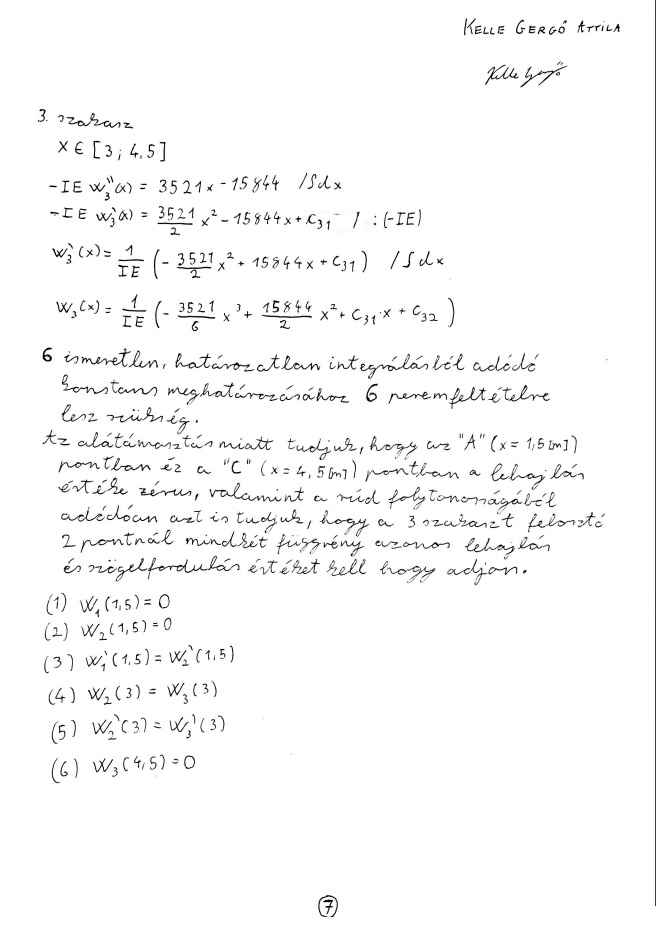 KELLE GERGŐ ATTILA
Kelle Gergő
3. szakasz
X ∈ [3 ; 4,5]
-IE W₃''(x) = 3521x - 15844 /∫dx
-IE W₃'(x) = 3521/2 x² - 15844x + C₃₁ / :(-IE)
W₃'(x) = 1/IE (- 3521/2 x² + 15844x + C₃₁) /∫dx
W₃(x) = 1/IE (- 3521/6 x³ + 15844/2 x² + C₃₁·x + C₃₂)
6 ismeretlen, határozatlan integrálásból adódó
konstans meghatározásához 6 peremfeltételre
lesz szükség.
Az alátámasztás miatt tudjuk, hogy az "A" (x = 1,5[m])
pontban és a "C" (x = 4,5[m]) pontban a lehajlás
értéke zérus, valamint a rúd folytonosságából
adódóan azt is tudjuk, hogy a 3 szakaszt felosztó
2 pontnál mindkét függvény azonos lehajlás
és szögelfordulás értéket kell hogy adjon.
(1) W₁(1,5) = 0
(2) W₂(1,5) = 0
(3) W₁'(1,5) = W₂'(1,5)
(4) W₂(3) = W₃(3)
(5) W₂'(3) = W₃'(3)
(6) W₃(4,5) = 0
7